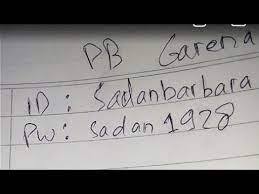 PB Garena
ID : Sadanbarbara
PW : sadan1928